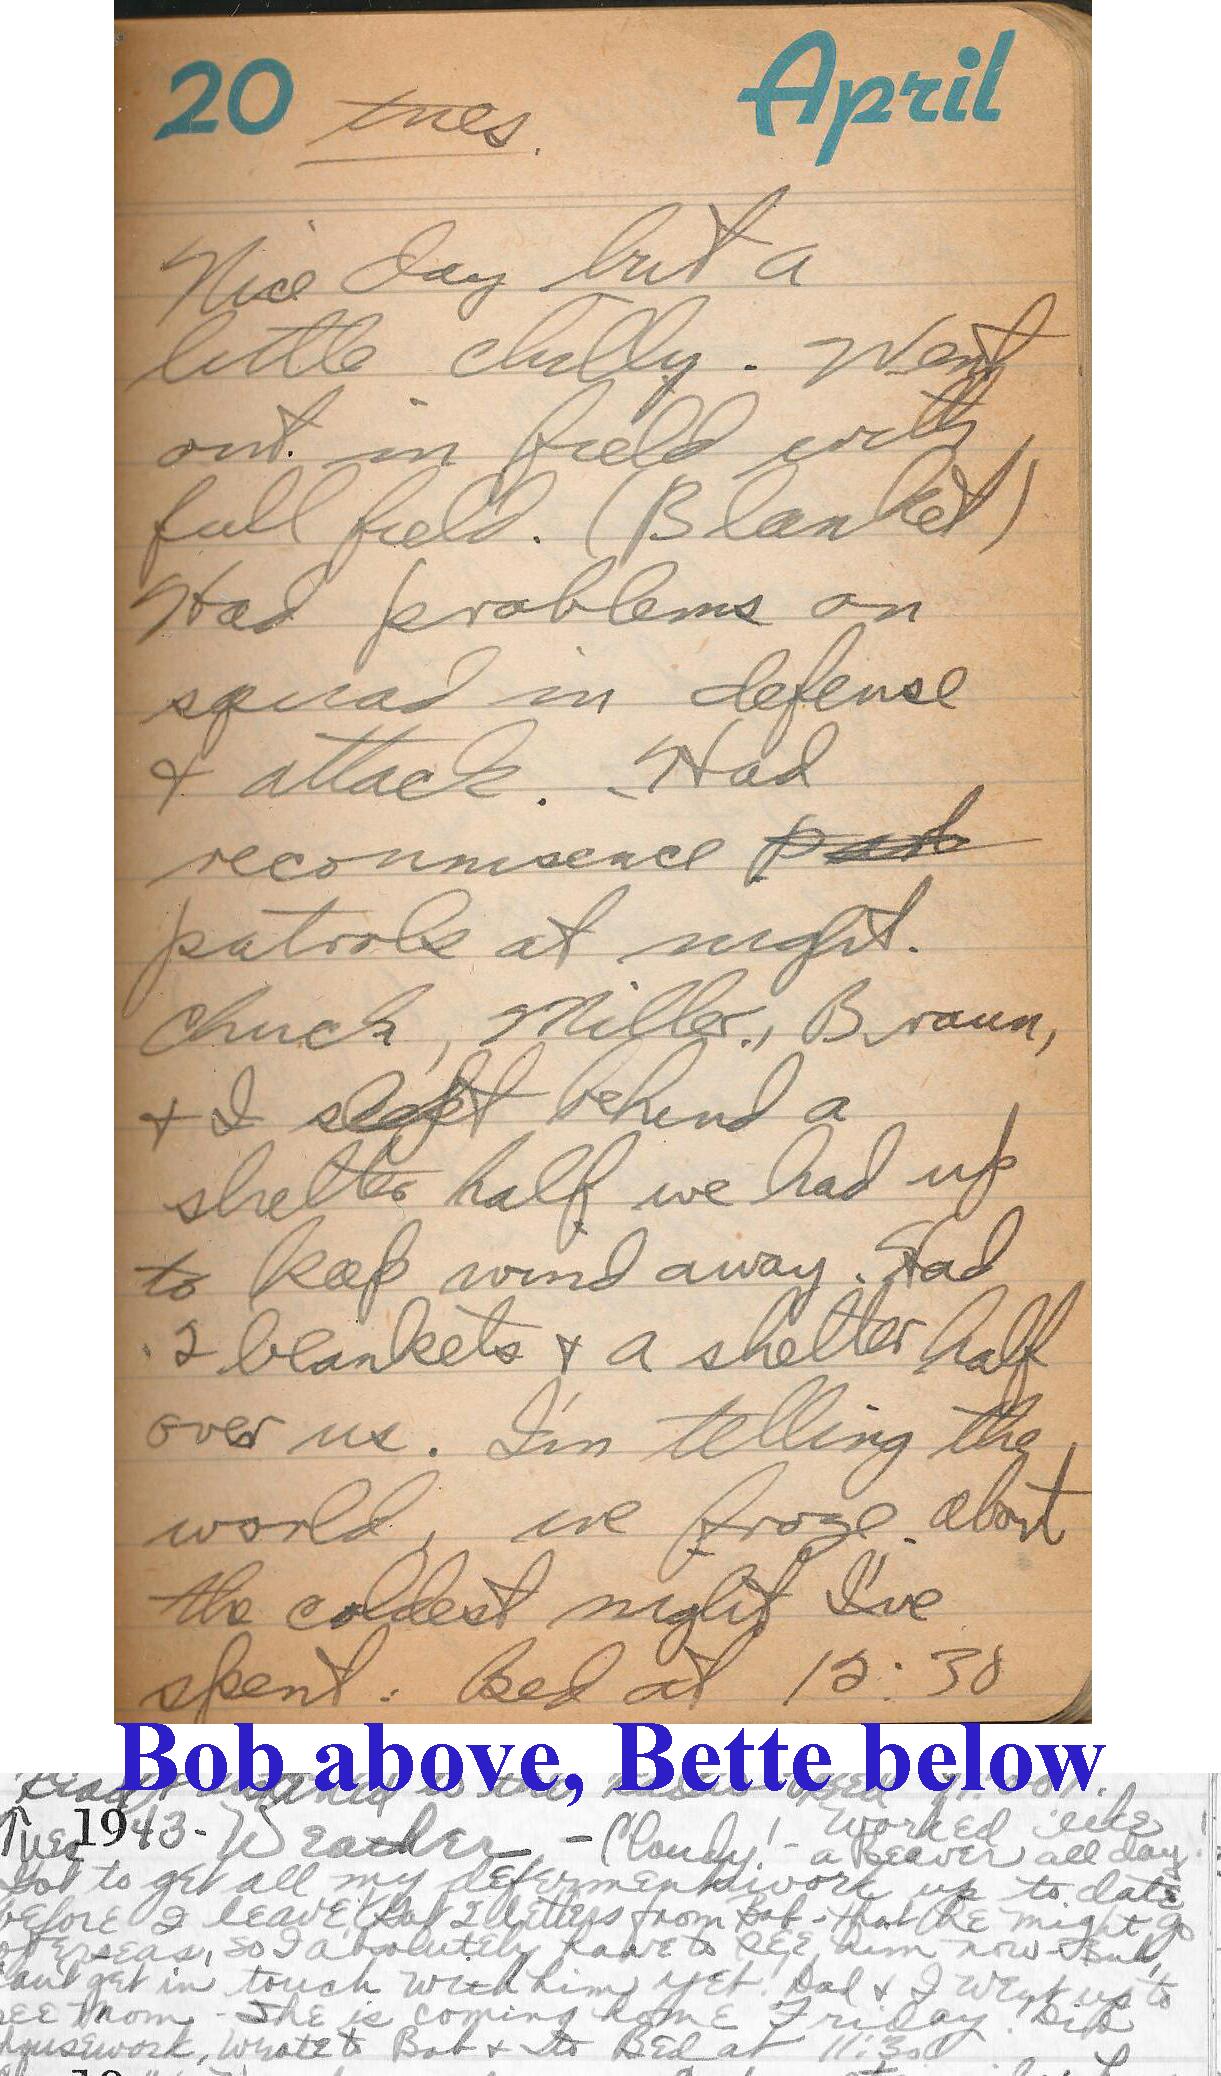 20 tues. April
Nice day but a
little chilly. Went
out in field with
full field. (Blanket)
Had problems on
squad in defense
& attack. Had
reconnisence
patrols at night.
Chuck, Miller, Braun,
& I slept behind a
shelter half we had up
to keep wind away. Had
2 blankets & a shelter half
over us. I'm telling the
world, we froze. about
the coldest night I've
spent. Bed at 12:30
Bob above, Bette below
Worked like
Tues 1943- Weather - Cloudy! - a Beaver all day!
Got to get all my deferment work up to date
before I leave! Got 2 letters from Bob - that he might go
overseas, so I absolutely have to see him now - But,
can't get in touch with him yet! Dad & I went up to
see Mom - She is coming home Friday! Did
housework, wrote to Bob & to Bed at 11:30